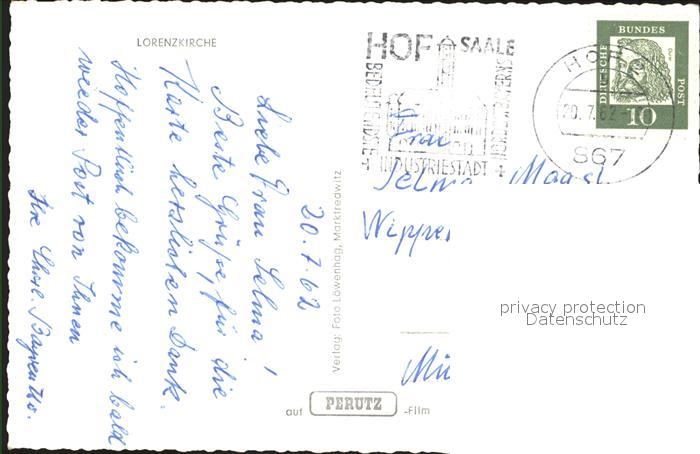 LORENZKIRCHE
20.7.62
Liebe Frau Selma!
Beste Grüße, für die
Karte herzlichen Dank.
Hoffentlich bekomme ich bald
wieder Post von Ihnen
Ihre
Verlag: Foto Löwenhag, Marktredwitz
auf PERUTZ -Film
HOF SAALE
BEDEUTENDSTE
NORDBAYERNS
INDUSTRIESTADT
HOF
20.7.62
867
DEUTSCHE BUNDESPOST
10
Frau
Selma Maasl
Wipper
Mü
privacy protection
Datenschutz